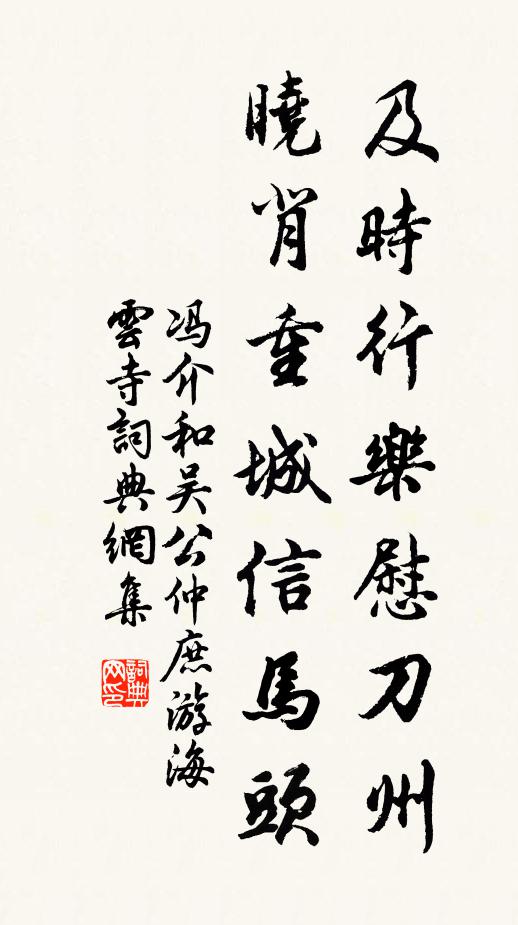 及時行樂慰刀州
曉背重城信馬頭
冯介和吴公仲庶游海
雲寺詞典網集
詞典网印